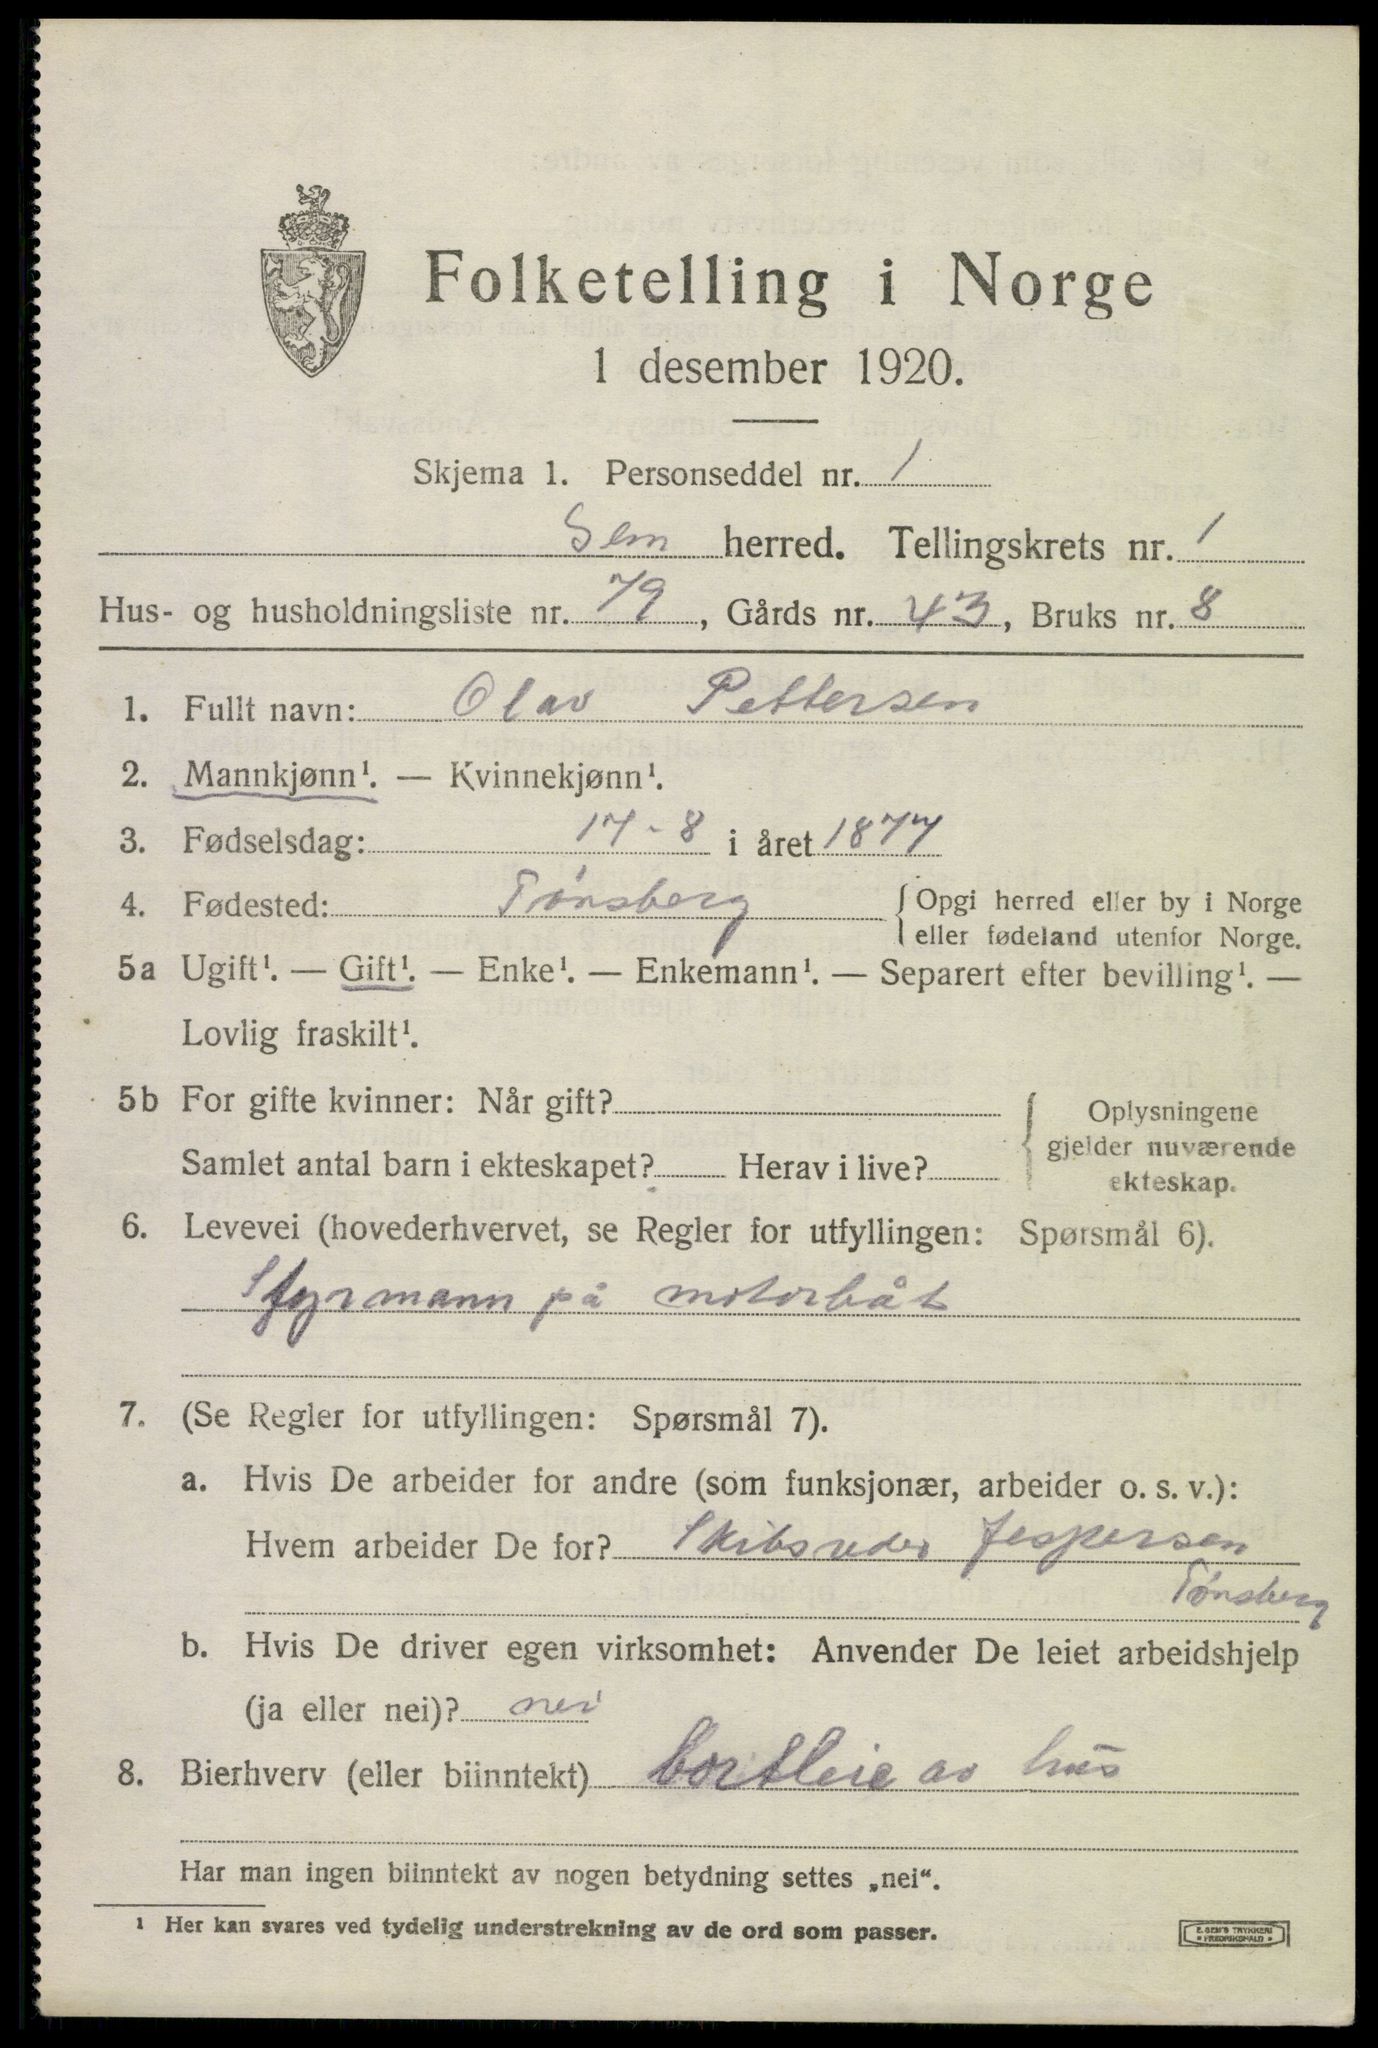 Folketelling i Norge
1 desember 1920.
Skjema 1. Personseddel nr. 1
Sem herred. Tellingskrets nr. 1
Hus- og husholdningsliste nr. 79, Gårds nr. 43, Bruks nr. 8
1. Fullt navn: Olav Pettersen
2. Mannkjønn¹. — Kvinnekjønn¹.
3. Fødselsdag: 17-8 i året 1877
4. Fødested: Tønsberg {Opgi herred eller by i Norge
eller fødeland utenfor Norge.
5a Ugift¹. — Gift¹. — Enke¹. — Enkemann¹. — Separert efter bevilling¹. —
Lovlig fraskilt¹.
5b For gifte kvinner: Når gift? { Oplysningene
gjelder nuværende
Samlet antal barn i ekteskapet? Herav i live?
ekteskap.
6. Levevei (hovederhvervet, se Regler for utfyllingen: Spørsmål 6).
Styrmann på motorbåt
7. (Se Regler for utfyllingen: Spørsmål 7).
a. Hvis De arbeider for andre (som funksjonær, arbeider o. s. v.):
Hvem arbeider De for? Skibsreder Jespersen
Tønsberg
b. Hvis De driver egen virksomhet: Anvender De leiet arbeidshjelp
(ja eller nei)? nei
8. Bierhverv (eller biinntekt) bortleie av hus
Har man ingen biinntekt av nogen betydning settes „nei“.
¹ Her kan svares ved tydelig understrekning av de ord som passer.
E. SEM'S TRYKKERI
FREDRIKSHALD